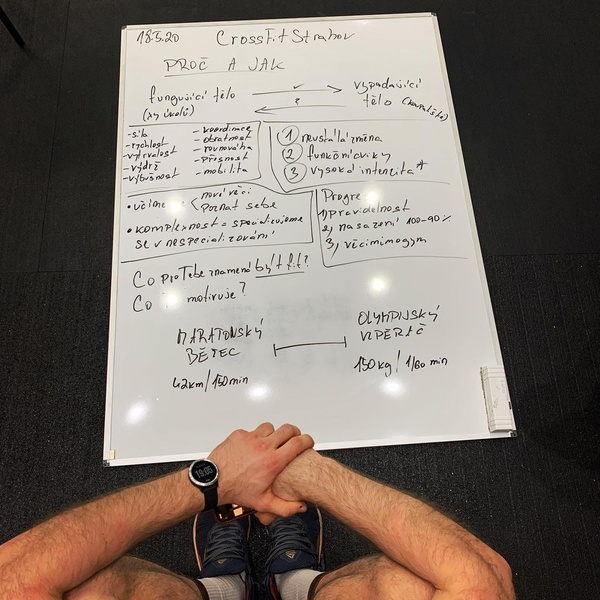 18.5.20 CrossFit Strahov
PROČ A JAK
fungující tělo ✓ vypadající
(xy úkolů) ? tělo (kapalště)
-síla
-rychlost
-vytrvalost
-výdrž
-výbušnost
-koordinace
-obratnost
-rovnováha
-přesnost
-mobilita
1 neustálá změna
2 funkční cviky
3 vysoká intenzita*
• učíme: < nové věci
poznat sebe
• komplexnost = specializujeme
se v nespecializování
Progres
1, pravidelnost
2, nasazení 100-90%
3, věci mimo gym
Co pro Tebe znamená být fit?
Co motivuje?
MARATONSKÝ
BĚŽEC
42km/150min
OLYMPIJSKÝ
VZPĚRAČ
150kg/1/60 min
19:05